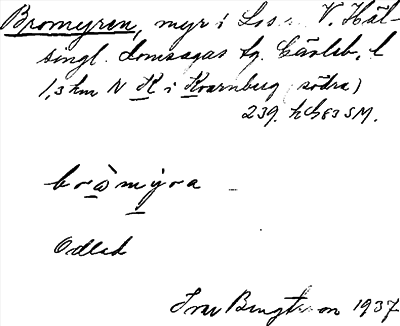 Bromyren, myr i Los s. V. Häl-
singl. domsagas tg. Gävleb. l
1,3 km N K i Kvarnberg (södra)
239. h 683 SM.
bròmýra
Odlad
Ivar Bengtsson 1937